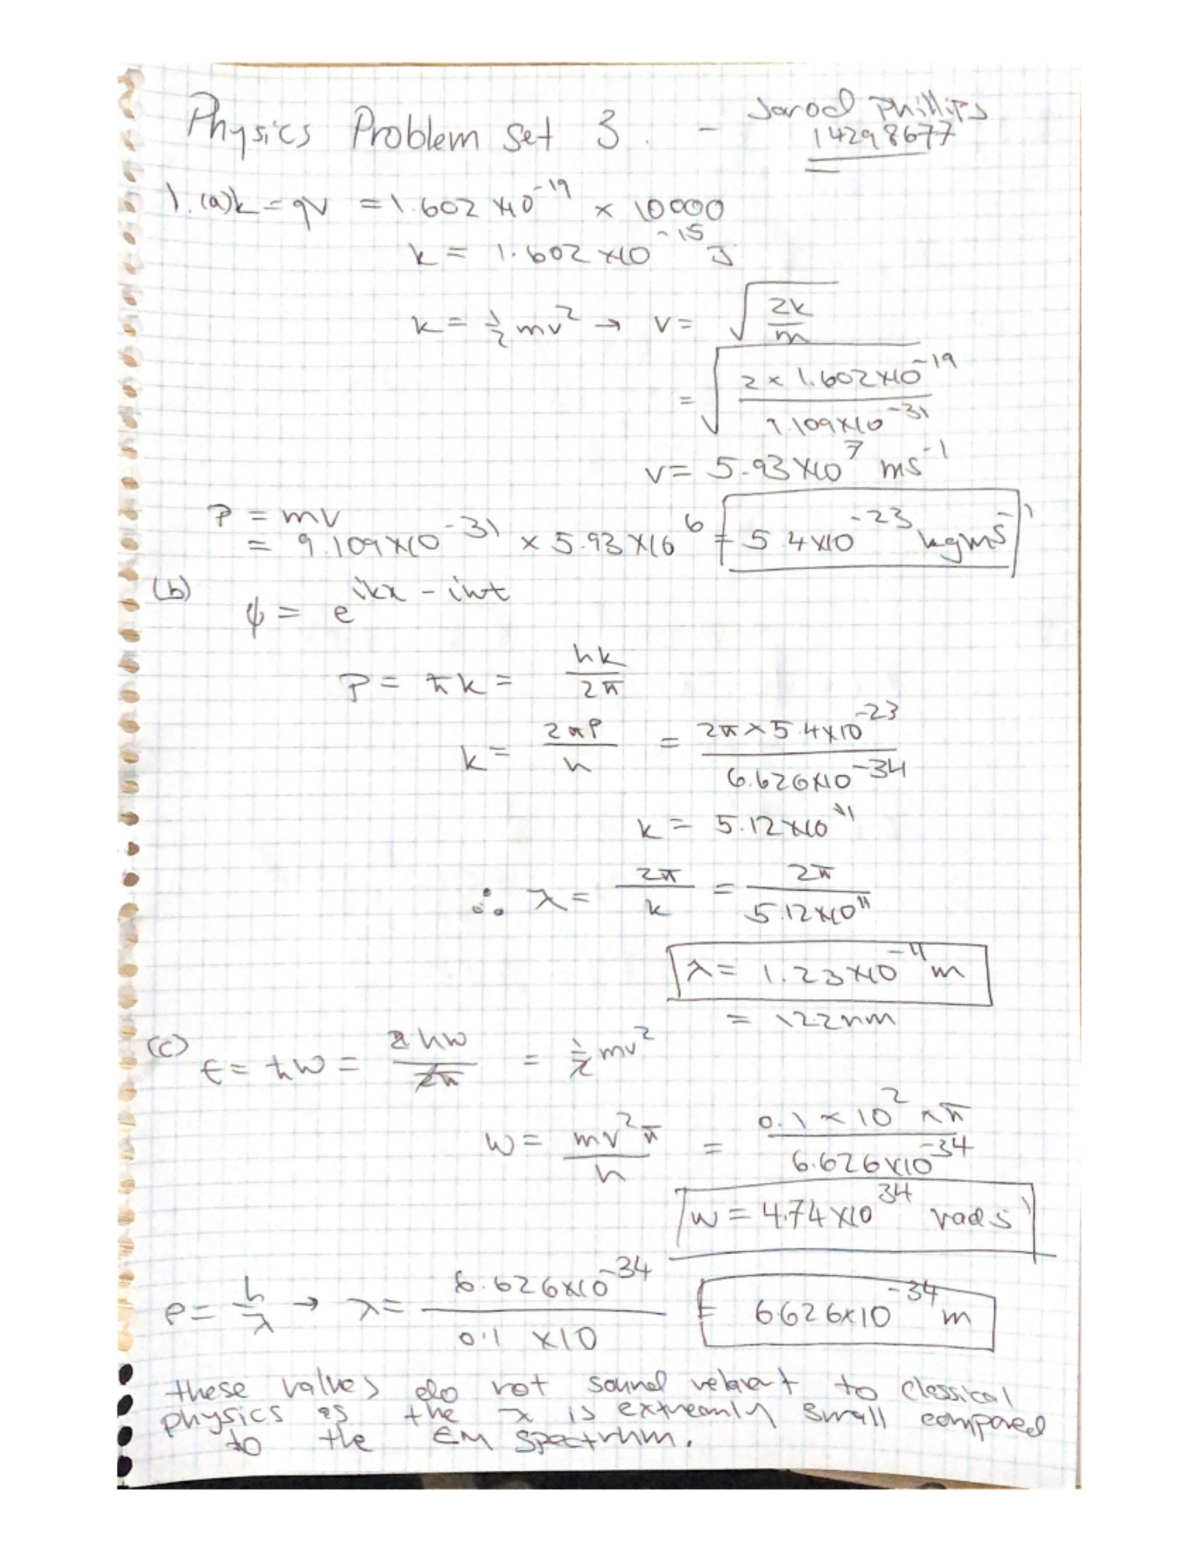 Physics Problem Set 3. - Jarod Phillips
14298677
1. (a) k = qv = 1.602 x10^-19 x 10000
k = 1.602 x10^-15 J
k = 1/2 mv^2 → v = √(2k/m)
= √(2 x 1.602 x10^-19 / 9.109 x10^-31)
v = 5.93 x10^7 ms^-1
P = mv
= 9.109 x10^-31 x 5.93 x10^6 = 5.4 x10^-23 kgms^-1
(b) ψ = e^(ikx - iwt)
P = ħk = hk/2π
k = 2πP/h = 2π x 5.4 x10^-23 / 6.626 x10^-34
k = 5.12 x10^11
∴ λ = 2π/k = 2π / 5.12 x10^11
λ = 1.23 x10^-11 m
= 122nm
(c) E = ħw = 2hw/2π = 1/2 mv^2
w = mv^2π/h = 0.1 x 10^2 x π / 6.626 x10^-34
w = 4.74 x10^34 rads^-1
P = h/λ → λ = 6.626 x10^-34 / 0.1 x10 = 6.626 x10^-34 m
these values do not sound to classical
physics as the λ is extreamly small compared
to the EM spectrum.